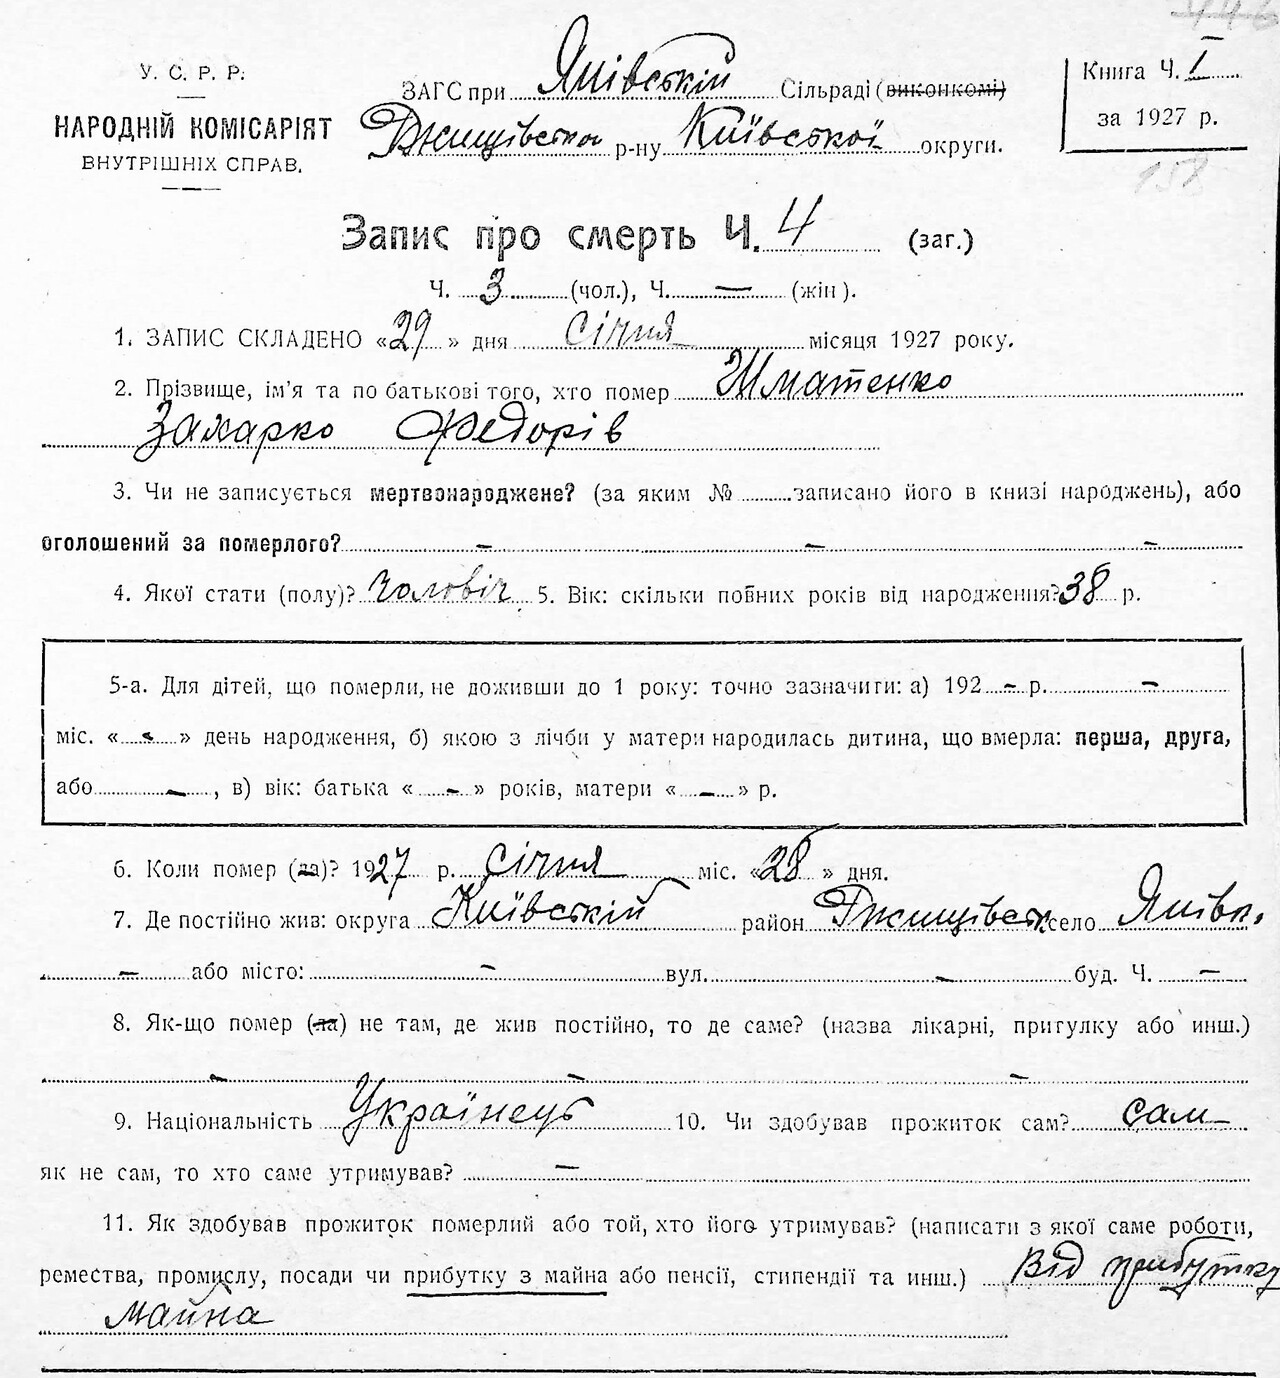 446
У. С. Р. Р.
НАРОДНІЙ КОМІСАРІЯТ
ВНУТРІШНІХ СПРАВ.
ЗАГС при Янівській Сільраді (виконкомі)
Ржищівська р-ну Київської округи.
Книга Ч. I
за 1927 р.
158
Запис про смерть Ч. 4 (заг.)
Ч. 3 (чол.), Ч. — (жін).
1. ЗАПИС СКЛАДЕНО «29» дня січня місяця 1927 року.
2. Прізвище, ім'я та по батькові того, хто помер Шматенко
Захарко Федорів
3. Чи не записується мертвонароджене? (за яким № записано його в книзі народжень), або
оголошений за померлого? – – –
4. Якої стати (полу)? Чоловіч. 5. Вік: скільки повних років від народження? 38 р.
5-а. Для дітей, що померли, не доживши до 1 року: точно зазначити: а) 192 – р. –
міс. « – » день народження, б) якою з лічби у матери народилась дитина, що вмерла: перша, друга,
або – , в) вік: батька « – » років, матери « – » р.
6. Коли помер (ла)? 1927 р. січня міс. «28» дня.
7. Де постійно жив: округа Київській район Ржищівськ село Янівка.
– або місто: – вул. – буд. Ч. –
8. Як-що помер (ла) не там, де жив постійно, то де саме? (назва лікарні, пригулку або инш.)
– – –
9. Національність Українець 10. Чи здобував прожиток сам? сам
як не сам, то хто саме утримував? –
11. Як здобував прожиток померлий або той, хто його утримував? (написати з якої саме роботи,
ремества, промислу, посади чи прибутку з майна або пенсії, стипендії та инш.) Від прибутку
майна